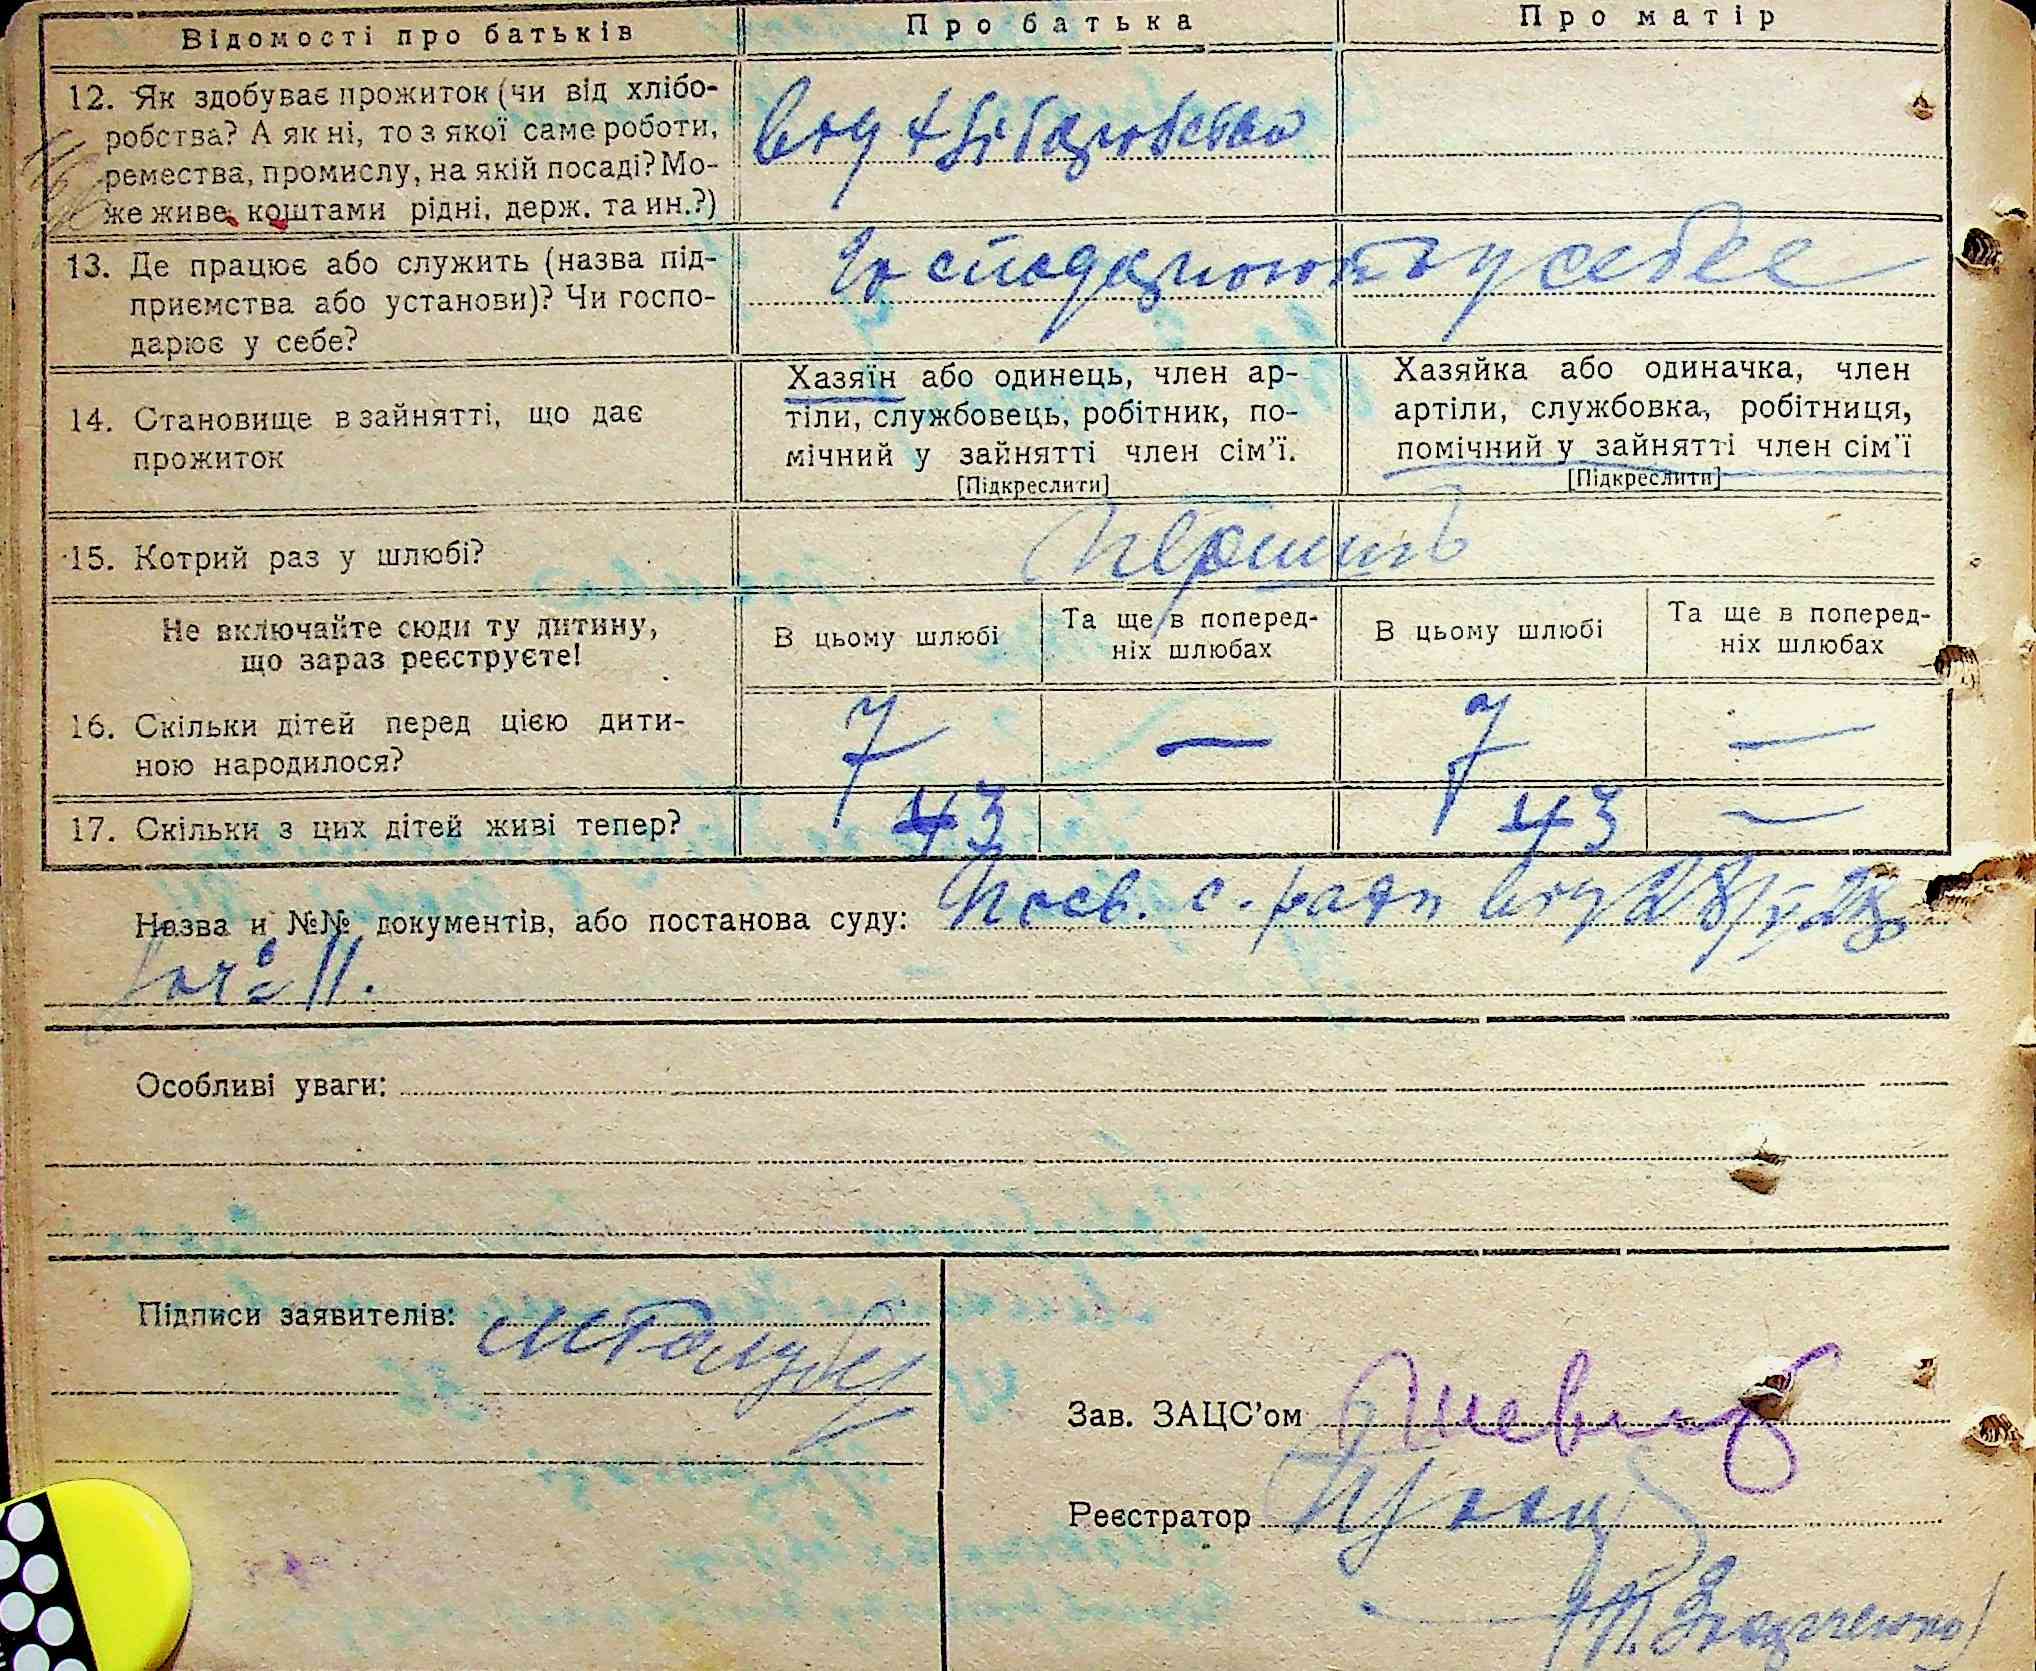 Відомості про батьків
Про батька
Про матір
12. Як здобуває прожиток (чи від хлібо-
робства? А як ні, то з якої саме роботи,
ремества, промислу, на якій посаді? Мо-
же живе коштами рідні, держ. та ин.?)
від хліборобства
13. Де працює або служить (назва під-
приємства або установи)? Чи госпо-
дарює у себе?
Господарюють у себе
14. Становище в зайнятті, що дає
прожиток
Хазяїн або одинець, член ар-
тіли, службовець, робітник, по-
мічний у зайнятті член сім'ї.
[Підкреслити]
Хазяйка або одиначка, член
артіли, службовка, робітниця,
помічний у зайнятті член сім'ї
[Підкреслити]
15. Котрий раз у шлюбі?
Не включайте сюди ту дитину,
що зараз реєструєте!
В цьому шлюбі
Та ще в поперед-
ніх шлюбах
В цьому шлюбі
Та ще в поперед-
ніх шлюбах
16. Скільки дітей перед цією дити-
ною народилося?
7 — 7 —
17. Скільки з цих дітей живі тепер?
43 43 —
Назва и №№ документів, або постанова суду: Посв. с. ради від
11.
Особливі уваги:
Підписи заявителів:
Зав. ЗАЦС'ом
Реєстратор